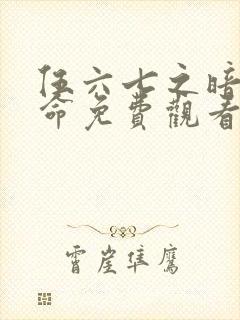 伍六七之暗
命免費觀看
霄崖隼鷹